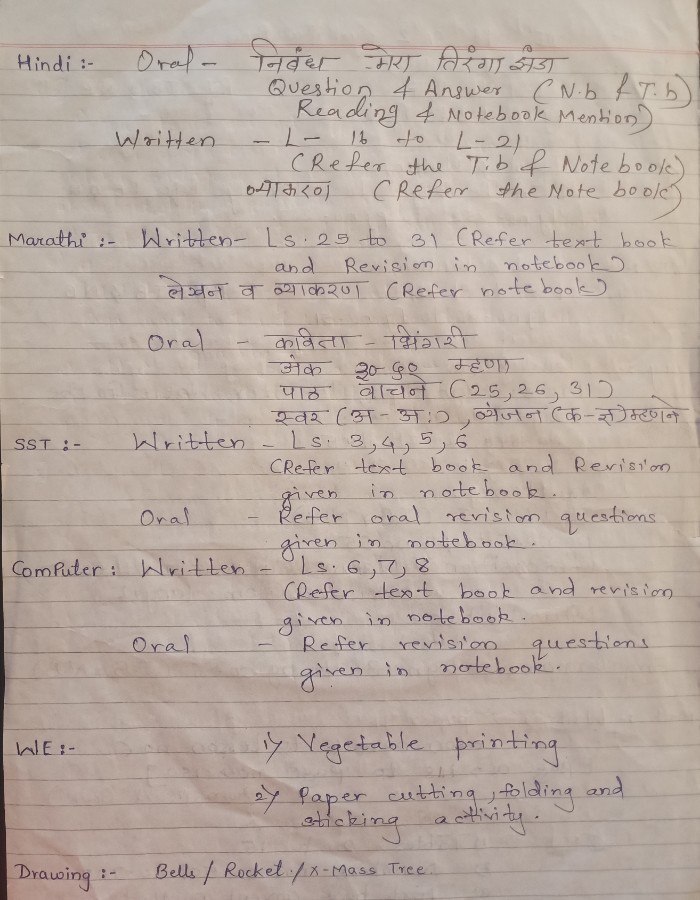 Hindi :- Oral - निबंध मेरा तिरंगा झंडा
Question & Answer (N.b & T.b)
Reading & Notebook Mention)
Written - L - 16 to L - 21
(Refer the T.b & Note book)
व्याकरण (Refer the Note book)
Marathi :- Written - Ls. 25 to 31 (Refer text book
and Revision in notebook)
लेखन व व्याकरण (Refer note book)
Oral - कविता - भिंगरी
अंक ३०-५० म्हणा
पाठ वाचन (25, 26, 31)
स्वर (अ - अः), व्यंजन (क-ज्ञ) म्हणने
SST :- Written - Ls. 3, 4, 5, 6
(Refer text book and Revision
given in notebook.
Oral - Refer oral revision questions
given in notebook.
Computer : Written - Ls. 6, 7, 8
(Refer text book and revision
given in notebook.
Oral - Refer revision questions
given in notebook.
WE :- 1) Vegetable printing
2) Paper cutting, folding and
sticking activity.
Drawing :- Bells / Rocket / X-Mass Tree.